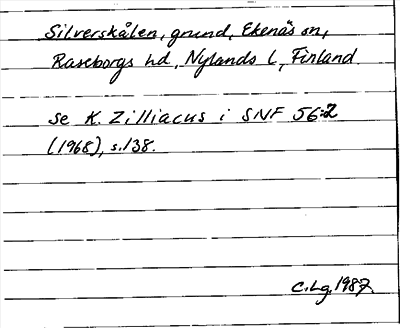 Silverskålen, grund, Ekenäs sn,
Raseborgs hd, Nylands l, Finland
Se K. Zilliacus i SNF 56:2
(1968), s.138.
C.Lg.1987